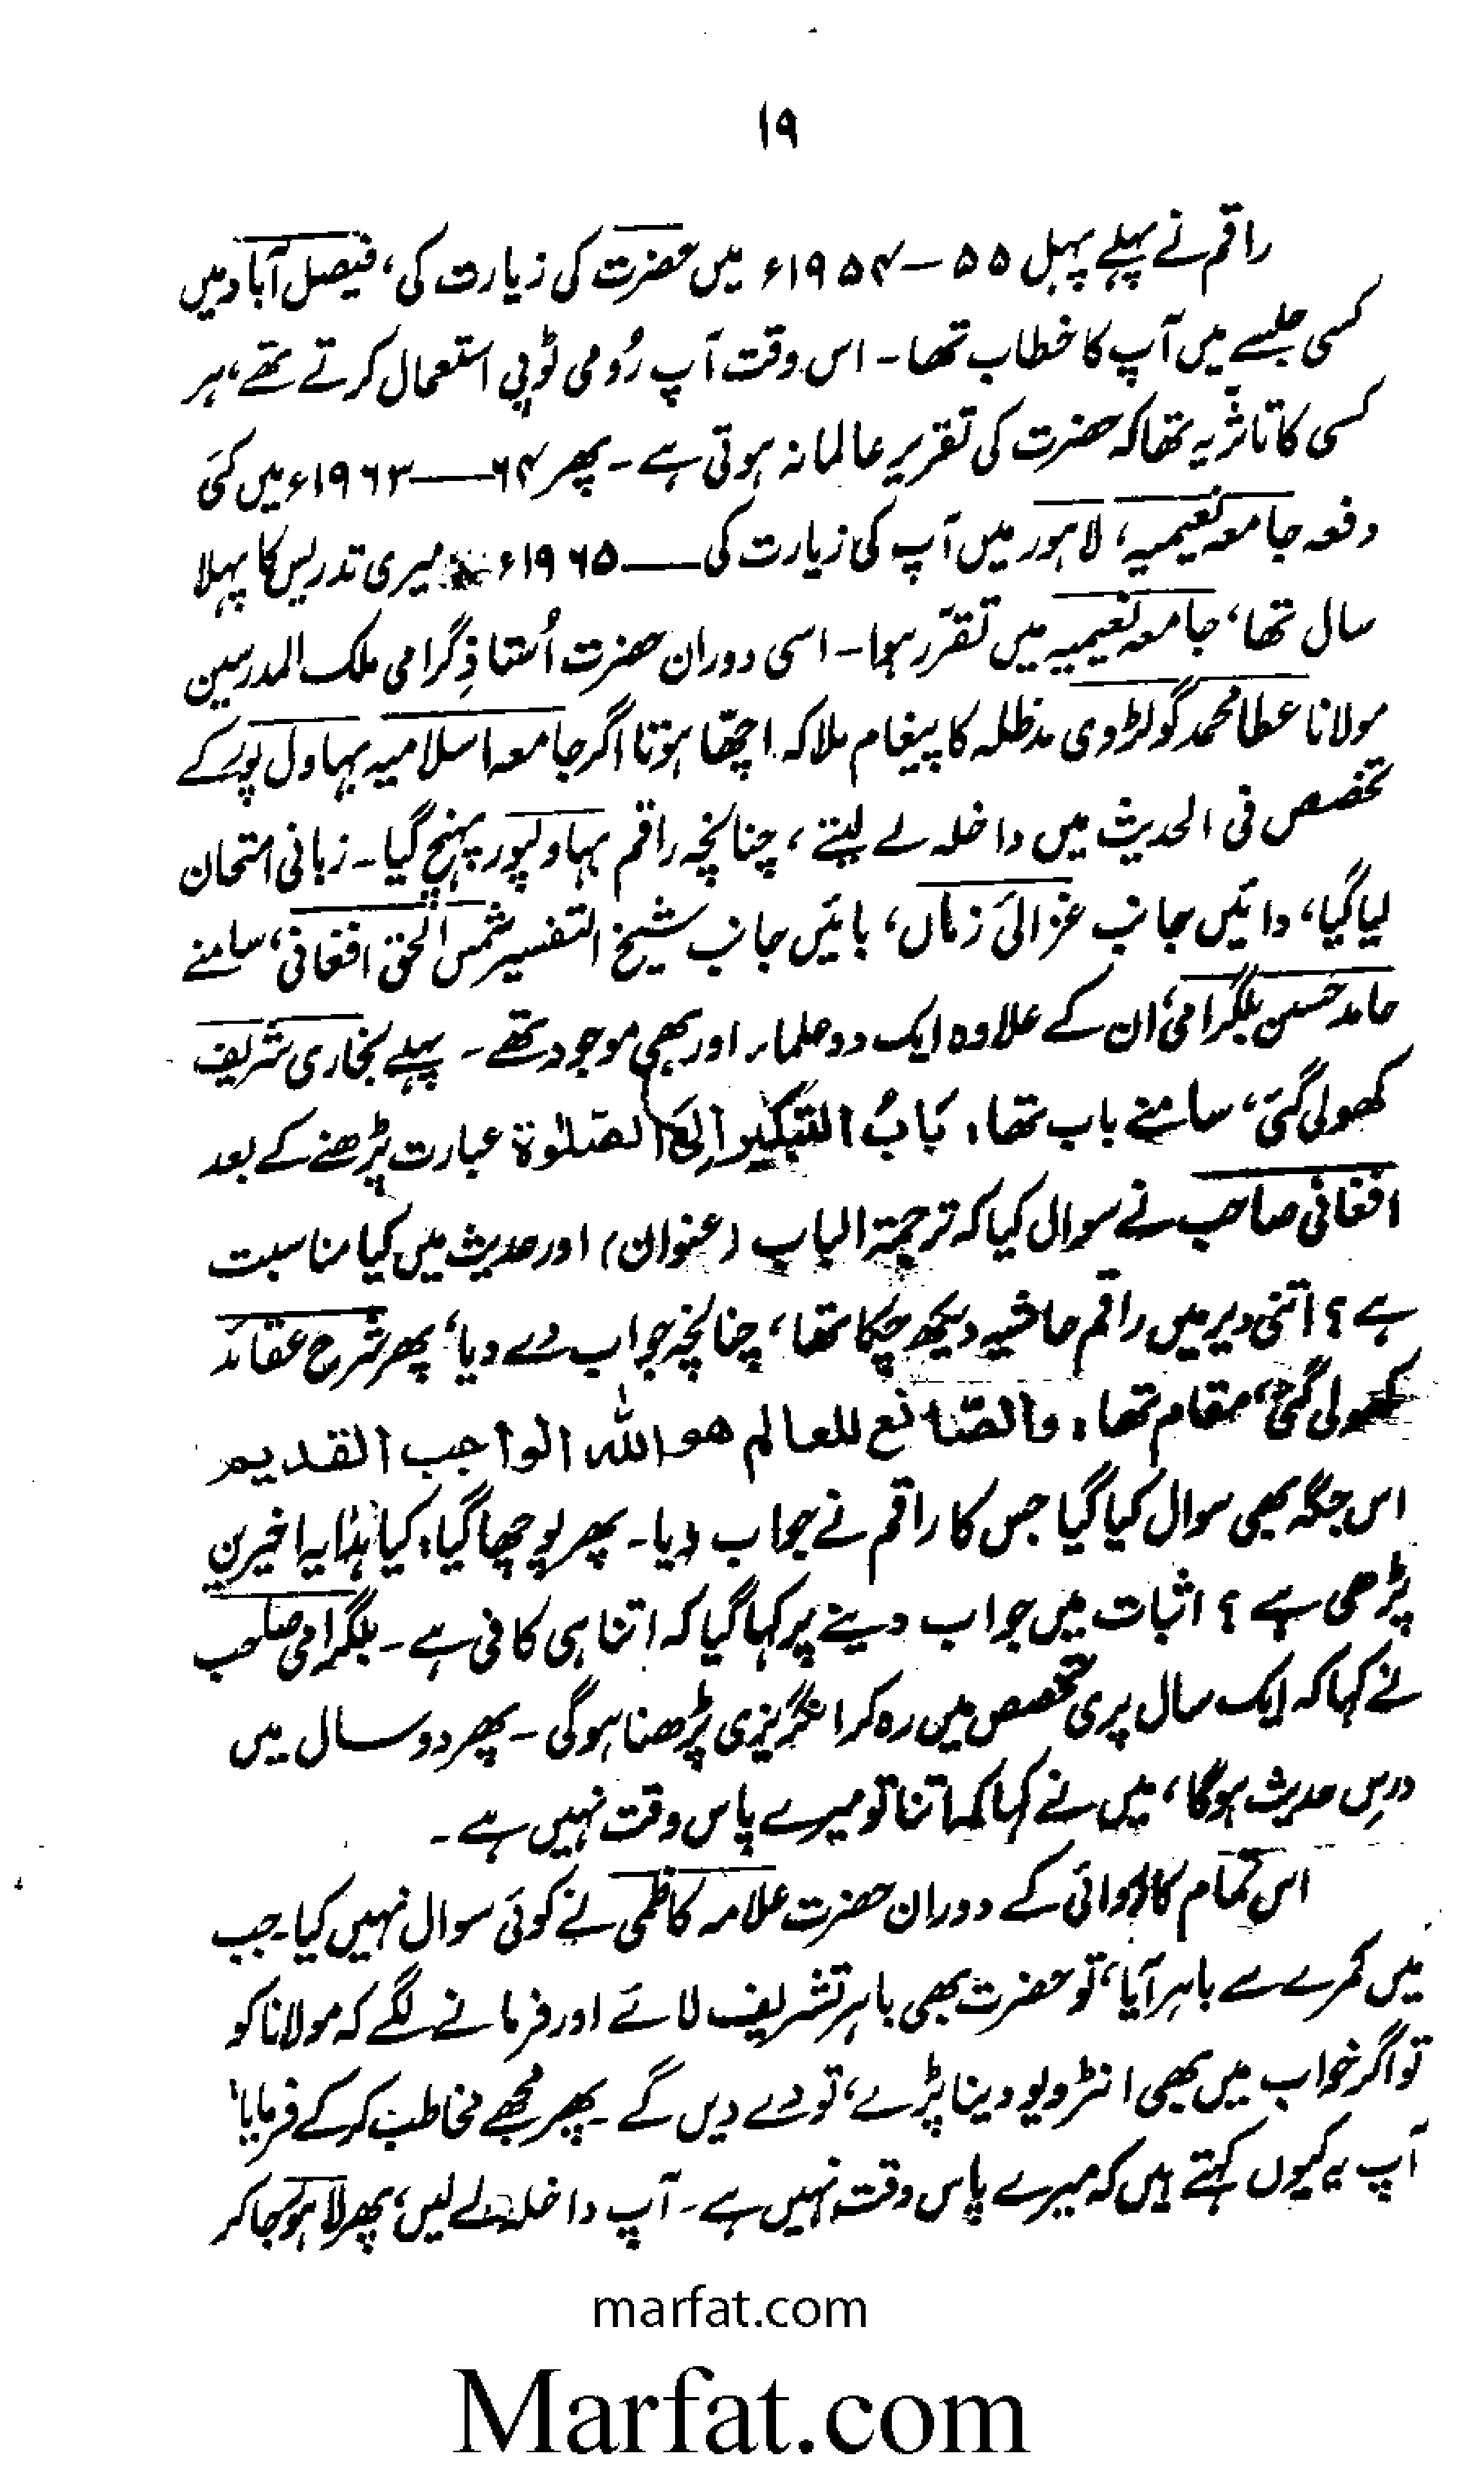 ۱۹
راقم نے پہلے پہل ۵۵ – ۱۹۵۴ء میں حضرت کی زیارت کی، فیصل آباد میں
کسی جلسے میں آپ کا خطاب تھا۔ اس وقت آپ رُومی ٹوپی استعمال کرتے تھے، ہر
کسی کا تاثر یہ تھا کہ حضرت کی تقریر عالمانہ ہوتی ہے۔ پھر ۶۴ — ۱۹۶۳ء میں کئی
دفعہ جامعہ نعیمیہ، لاہور میں آپ کی زیارت کی — ۱۹۶۵ء میری تدریس کا پہلا
سال تھا، جامعہ نعیمیہ میں تقرّر ہوا۔ اسی دوران حضرت اُستاذِ گرامی ملک المدرسین
مولانا عطا محمد گولڑوی مدظلہ کا پیغام ملا کہ اچھّا ہوتا اگر جامعہ اسلامیہ بہاول پور کے
تخصص فی الحدیث میں داخلہ لے لیتے، چنانچہ راقم بہاولپور پہنچ گیا۔ زبانی امتحان
لیا گیا، دائیں جانب غزالیٔ زماں، بائیں جانب شیخ التفسیر شمس الحق افغانی، سامنے
حامد حسن بلگرامی، ان کے علاوہ ایک دو علماء اور بھی موجود تھے۔ پہلے بخاری شریف
کھولی گئی، سامنے باب تھا: بَابُ التبکیر اِلَی الصّلوٰۃ عبارت پڑھنے کے بعد
افغانی صاحب نے سوال کیا کہ ترجمۃ الباب (عنوان) اور حدیث میں کیا مناسبت
ہے؟ اتنی دیر میں راقم حاشیہ دیکھ چکا تھا، چنانچہ جواب دے دیا، پھر شرح عقائد
کھولی گئی، مقام تھا: والصّانع للعالم هو الله الواجب القديم
اس جگہ بھی سوال کیا گیا جس کا راقم نے جواب دیا۔ پھر پوچھا گیا: کیا ہدایہ اخیرین
پڑھی ہے؟ اثبات میں جواب دینے پر کہا گیا کہ اتنا ہی کافی ہے۔ بلگرامی صاحب
نے کہا کہ ایک سال پری تخصص میں رہ کر انگریزی پڑھنا ہوگی۔ پھر دو سال میں
درسِ حدیث ہوگا، میں نے کہا کہ اتنا تو میرے پاس وقت نہیں ہے۔
اس تمام کارروائی کے دوران حضرت علامہ کاظمی نے کوئی سوال نہیں کیا۔ جب
میں کمرے سے باہر آیا، تو حضرت بھی باہر تشریف لائے اور فرمانے لگے کہ مولانا کو
تو اگر خواب میں بھی انٹرویو دینا پڑے، تو دے دیں گے۔ پھر مجھے مخاطب کر کے فرمایا،
آپ یہ کیوں کہتے ہیں کہ میرے پاس وقت نہیں ہے۔ آپ داخلہ لے لیں، پھر لاہور جا کر
marfat.com
Marfat.com